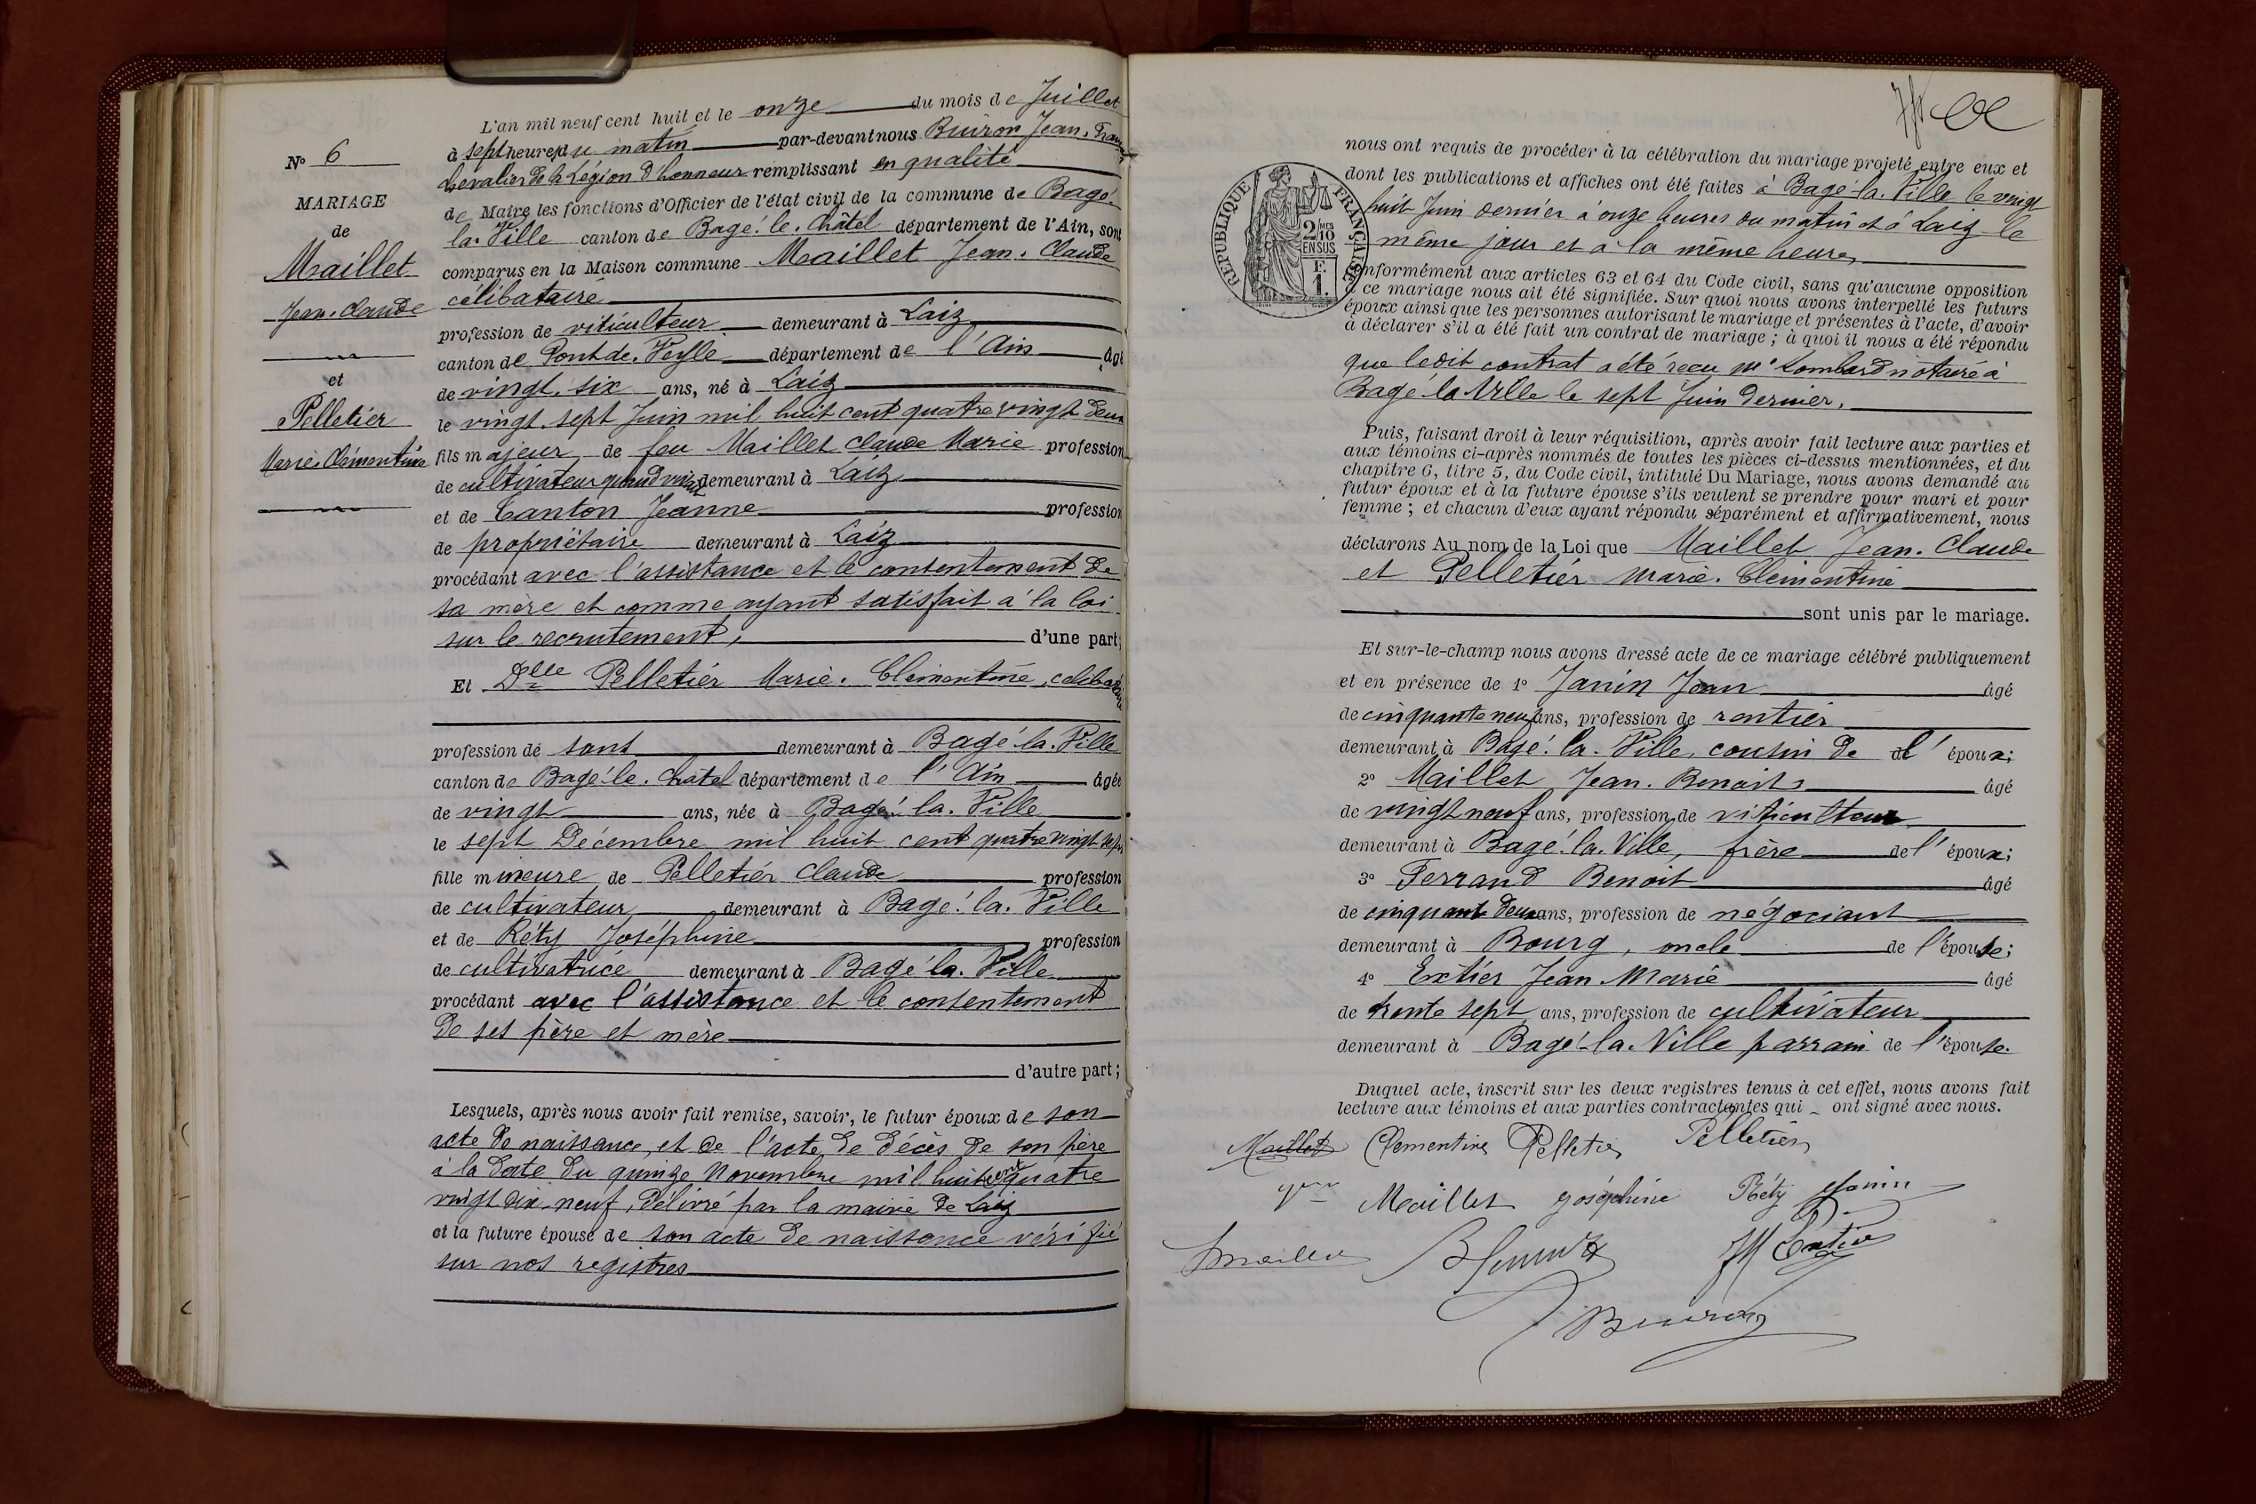 N° 6
MARIAGE
de
Maillet
Jean-Claude
et
Pelletier
Marie-Clémentine
L'an mil neuf cent huit et le onze du mois de Juillet
à sept heures du matin par-devant nous Buiron Jean-Franç
Chevalier de la Légion d'honneur remplissant en qualité
de Maire les fonctions d'Officier de l'état civil de la commune de Bagé-
la-Ville canton de Bagé-le-Châtel département de l'Ain, sont
comparus en la Maison commune Maillet Jean-Claude
célibataire
profession de viticulteur demeurant à Laiz
canton de Pont-de-Veyle département de l'Ain âgé
de vingt-six ans, né à Laiz
le vingt-sept Juin mil huit cent quatre vingt deux
fils majeur de feu Maillet Claude Marie profession
de cultivateur quand vivait demeurant à Laiz
et de Canton Jeanne profession
de propriétaire demeurant à Laiz
procédant avec l'assistance et le consentement de
sa mère et comme ayant satisfait à la loi
sur le recrutement, d'une part;
Et Dlle Pelletier Marie-Clémentine, célibataire
profession de sans demeurant à Bagé-la-Ville
canton de Bagé-le-Châtel département de l'Ain âgée
de vingt ans, née à Bagé-la-Ville
le sept Décembre mil huit cent quatre vingt sept
fille mineure de Pelletier Claude profession
de cultivateur demeurant à Bagé-la-Ville
et de Réty Joséphine profession
de cultivatrice demeurant à Bagé-la-Ville
procédant avec l'assistance et le consentement
de ses père et mère
d'autre part;
Lesquels, après nous avoir fait remise, savoir, le futur époux de son
acte de naissance, et de l'acte de décès de son père
à la date du quinze Novembre mil huit cent quatre
vingt dix-neuf, délivré par la mairie de Laiz
et la future épouse de son acte de naissance vérifié
sur nos registres
nous ont requis de procéder à la célébration du mariage projeté entre eux et
dont les publications et affiches ont été faites à Bagé-la-Ville le vingt
huit Juin dernier à onze heures du matin et à Laiz le
même jour et à la même heure,
RÉPUBLIQUE FRANÇAISE
2/10 MES
EN SUS
F.
1.
conformément aux articles 63 et 64 du Code civil, sans qu'aucune opposition
à ce mariage nous ait été signifiée. Sur quoi nous avons interpellé les futurs
époux ainsi que les personnes autorisant le mariage et présentes à l'acte, d'avoir
à déclarer s'il a été fait un contrat de mariage; à quoi il nous a été répondu
que ledit contrat a été reçu Me Lombard notaire à
Bagé-la-Ville le sept Juin dernier.
Puis, faisant droit à leur réquisition, après avoir fait lecture aux parties et
aux témoins ci-après nommés de toutes les pièces ci-dessus mentionnées, et du
chapitre 6, titre 5, du Code civil, intitulé Du Mariage, nous avons demandé au
futur époux et à la future épouse s'ils veulent se prendre pour mari et pour
femme; et chacun d'eux ayant répondu séparément et affirmativement, nous
déclarons Au nom de la Loi que Maillet Jean-Claude
et Pelletier Marie-Clémentine
sont unis par le mariage.
Et sur-le-champ nous avons dressé acte de ce mariage célébré publiquement
et en présence de 1° Janin Jean âgé
de cinquante neuf ans, profession de rentier
demeurant à Bagé-la-Ville, cousin de de l'époux;
2° Maillet Jean-Benoit âgé
de vingt neuf ans, profession de viticulteur
demeurant à Bagé-la-Ville, frère de l'époux;
3° Ferrand Benoit âgé
de cinquante deux ans, profession de négociant
demeurant à Bourg, oncle de l'épouse;
4° Extier Jean Marie âgé
de trente sept ans, profession de cultivateur
demeurant à Bagé-la-Ville parrain de l'épouse.
Duquel acte, inscrit sur les deux registres tenus à cet effet, nous avons fait
lecture aux témoins et aux parties contractantes qui ont signé avec nous.
Maillet Clementine Pelletier Pelletier
Maillet Joséphine Réty Janin
JM Extier
Buiron